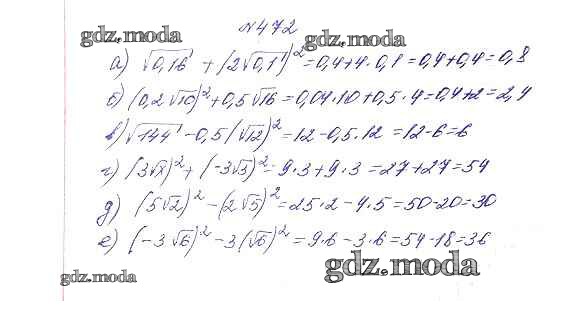 №472
gdz.moda
gdz.moda
а) √0,16 + (2√0,1)² = 0,4+4·0,1 = 0,4+0,4 = 0,8
б) (0,2√10)² + 0,5√16 = 0,04·10 + 0,5·4 = 0,4+2 = 2,4
в) √144 - 0,5(√12)² = 12 - 0,5·12 = 12-6 = 6
г) (3√3)² + (-3√3)² = 9·3 + 9·3 = 27+27 = 54
д) (5√2)² - (2√5)² = 25·2 - 4·5 = 50-20 = 30
е) (-3√6)² - 3(√6)² = 9·6 - 3·6 = 54-18 = 36
gdz.moda
gdz.moda